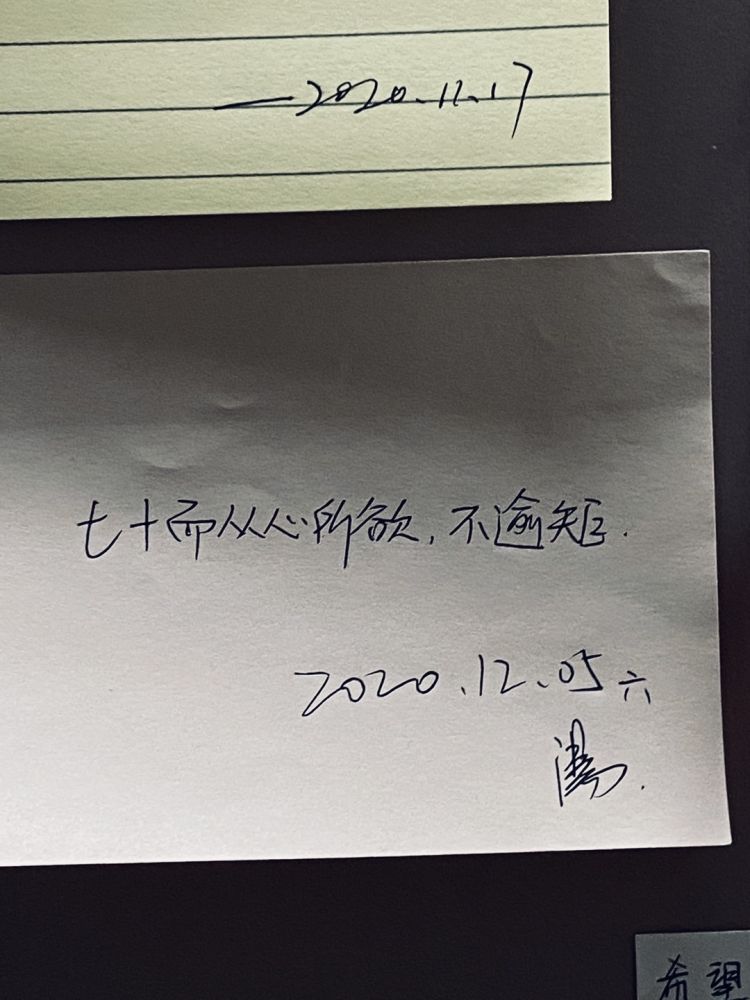 ——2020.12.17
七十而从心所欲,不逾矩.
2020.12.05 六
希望